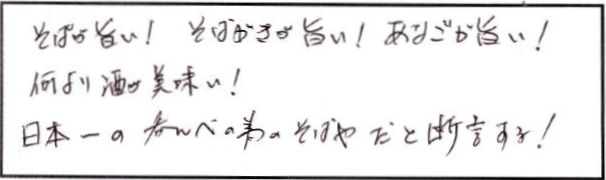 そばが旨い! そばがきが旨い! あなごが旨い!
何より酒が美味い!
日本一の 呑んべの為の そばや だと断言する!